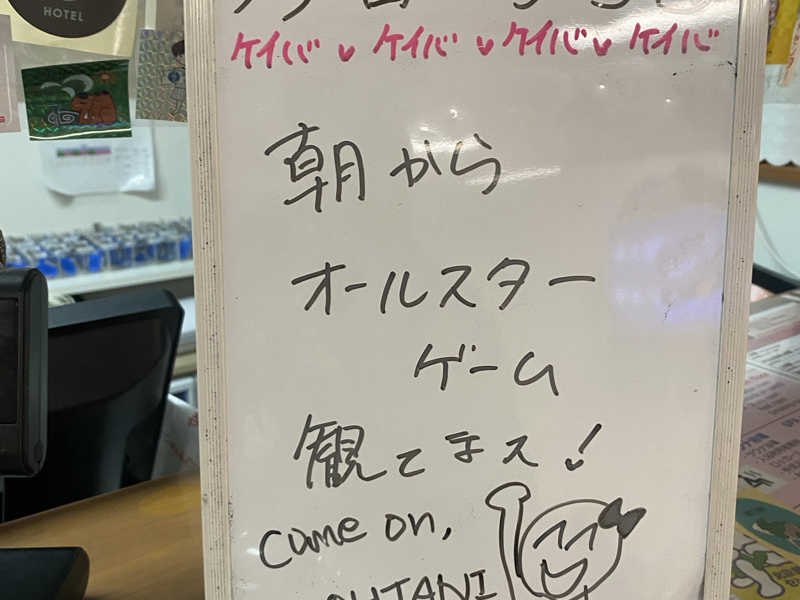 HOTEL
ケイバ♥ケイバ♥ケイバ♥ケイバ
朝から
オールスター
ゲーム
観てまス!
Come on,
OHTANI